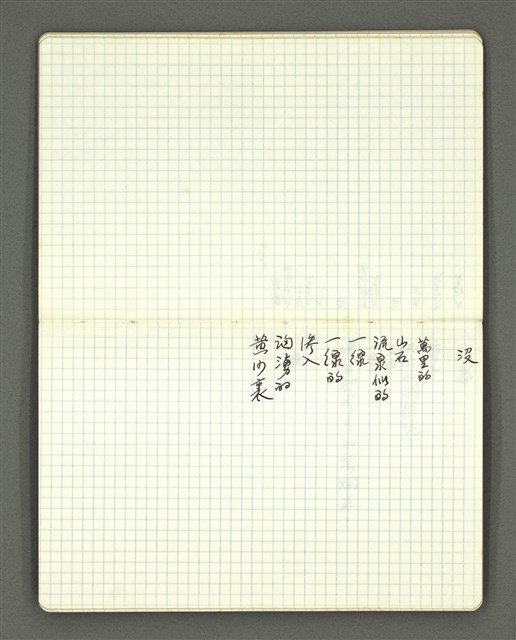 沒
萬里的
山石
流泉似的
一線
一線的
滲入
洶湧的
黄沙裏